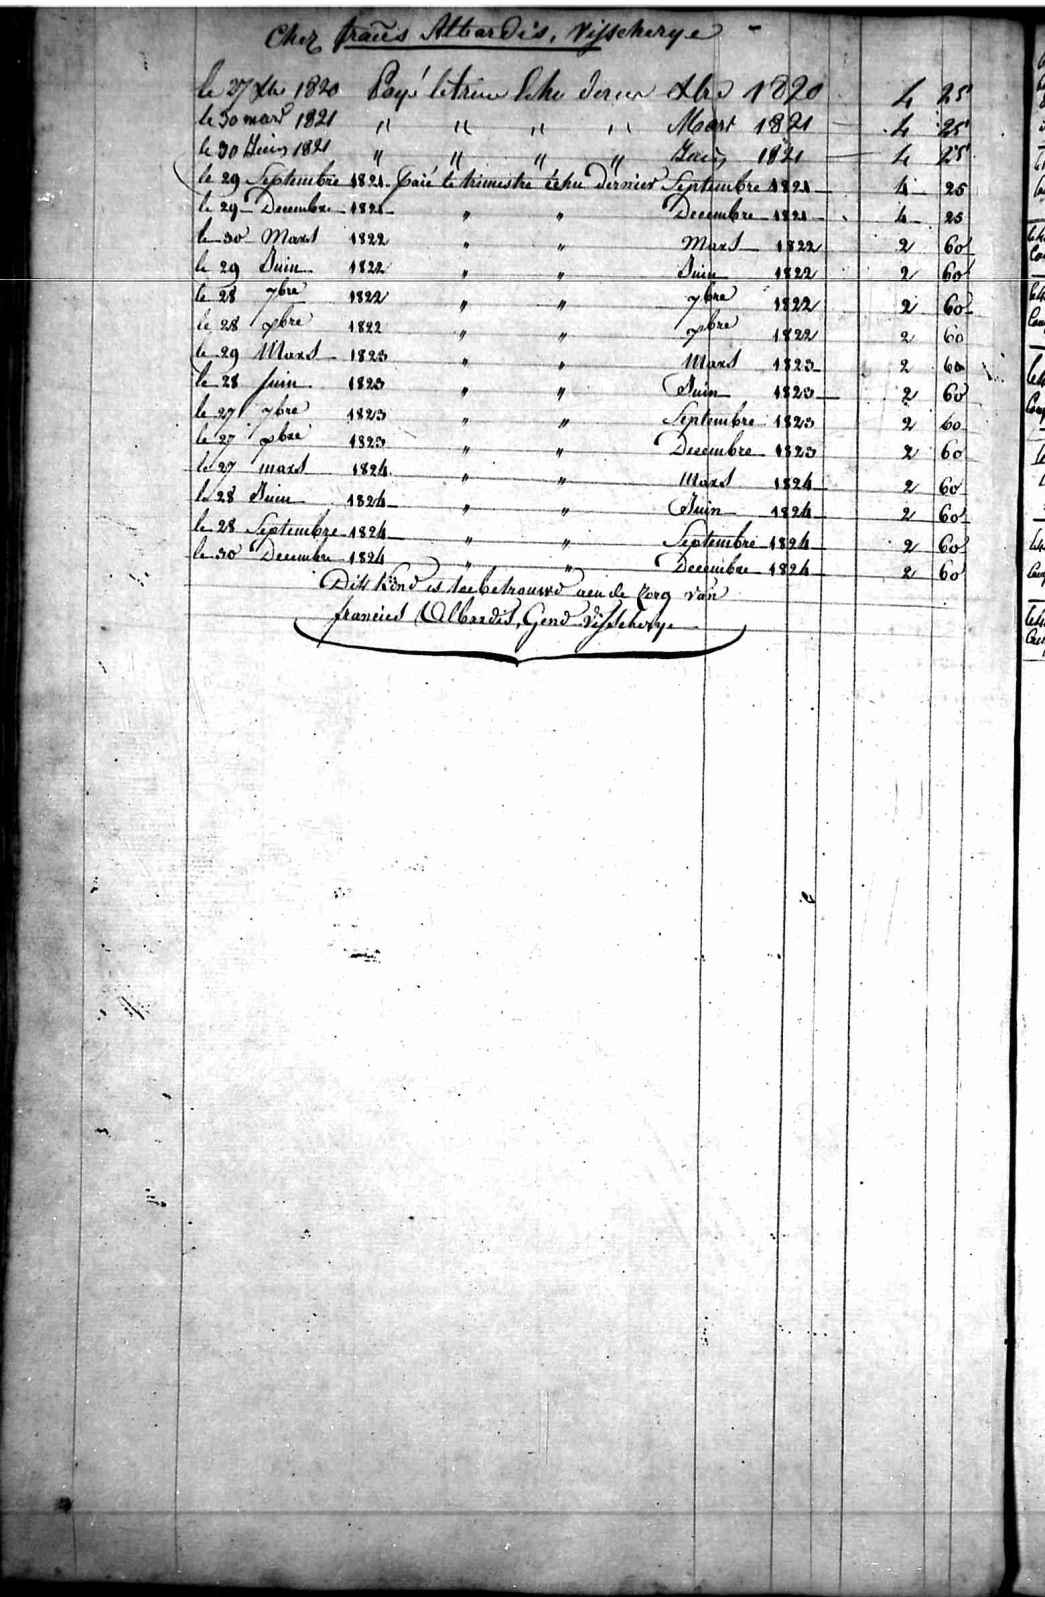 Chez francs Albardis, Visscherye
le 27 Xbre 1820 Payé le trim Echu dernier Xbre 1820 4 25
le 30 mars 1821 " " " " Mars 1821 4 25
le 30 Juin 1821 " " " " Juin 1821 4 25
le 29 Septembre 1821 Paié le trimestre échu dernier Septembre 1821 4 25
le 29 Decembre 1821 " " Decembre 1821 4 25
le 30 Mars 1822 " " Mars 1822 2 60
le 29 Juin 1822 " " Juin 1822 2 60
le 28 7bre 1822 " " 7bre 1822 2 60
le 28 xbre 1822 " " xbre 1822 2 60
le 29 Mars 1823 " " Mars 1823 2 60
le 28 Juin 1823 " " Juin 1823 2 60
le 27 7bre 1823 " " Septembre 1823 2 60
le 27 xbre 1823 " " Decembre 1823 2 60
le 27 mars 1824 " " Mars 1824 2 60
le 28 Juin 1824 " " Juin 1824 2 60
le 28 Septembre 1824 " " Septembre 1824 2 60
le 30 Decembre 1824 " " Decembre 1824 2 60
Ditt Kind is toebetrouwd aen de Zorg van
francies Albardis, Gend Visscherye